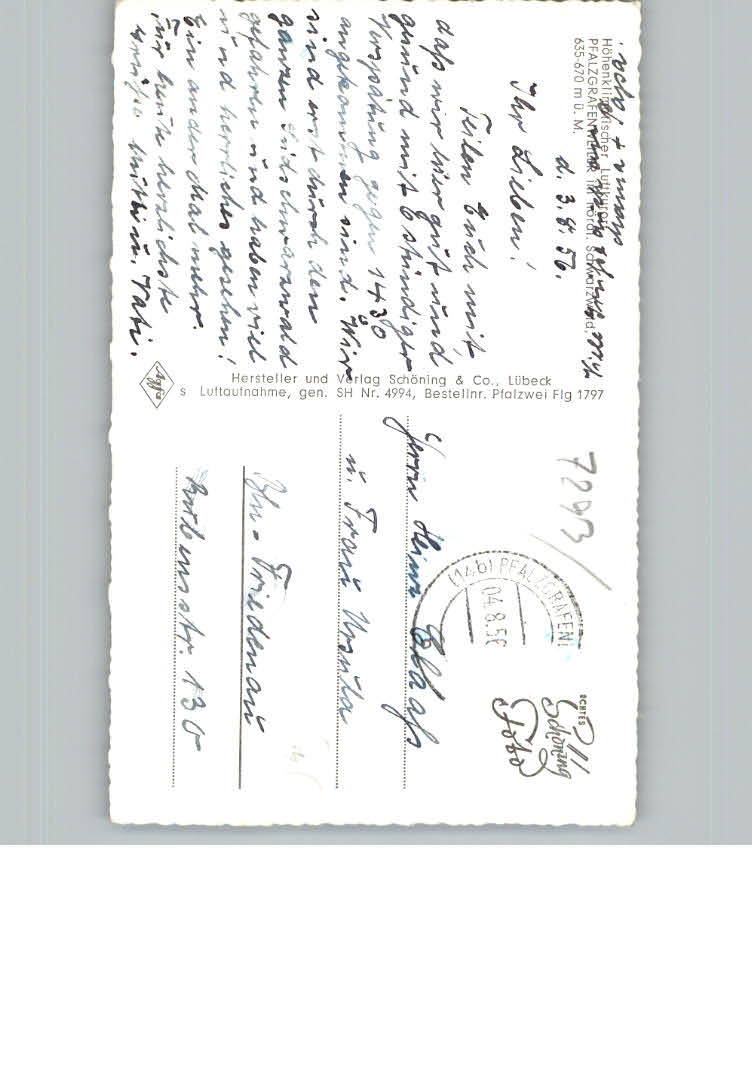 Höhenklimatischer Luftkurort
PFALZGRAFENWEILER im nördl. Schwarzwald,
635-670 m ü. M.
d. 3.8.56.
Ihr Lieben!
Teilen Euch mit,
daß wir hier gut und
gesund mit 6 stündiger
Verspätung gegen 14³⁰
angekommen sind. Wir
sind erst durch den
ganzen Südschwarzwald
gefahren und haben viel
und herrliches gesehen!
Ein ander mal mehr.
Für heute herzlichste
Grüße
Hersteller und Verlag Schöning & Co., Lübeck
S Luftaufnahme, gen. SH Nr. 4994, Bestellnr. Pfalzwei Flg 1797
Agfa
7293
(14b) PFALZGRAFENW
04.8.56
ECHTES
Schöning
Foto
Herrn Heinz
u. Frau Ursula
Bln-Friedenau
130